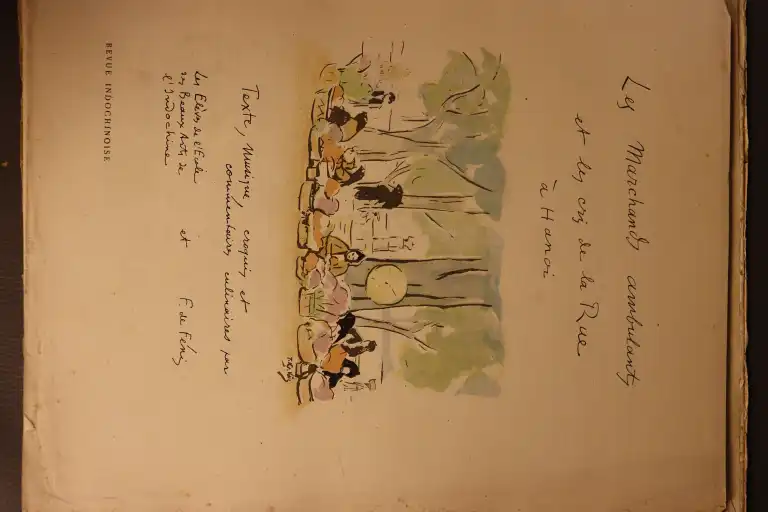 Les Marchands ambulants
et les cris de la Rue
à Hanoi
Texte, musique, croquis et
commentaires culinaires par
Les Elèves de l'Ecole
des Beaux Arts de
l'Indochine
et
F. de Fénis
REVUE INDOCHINOISE